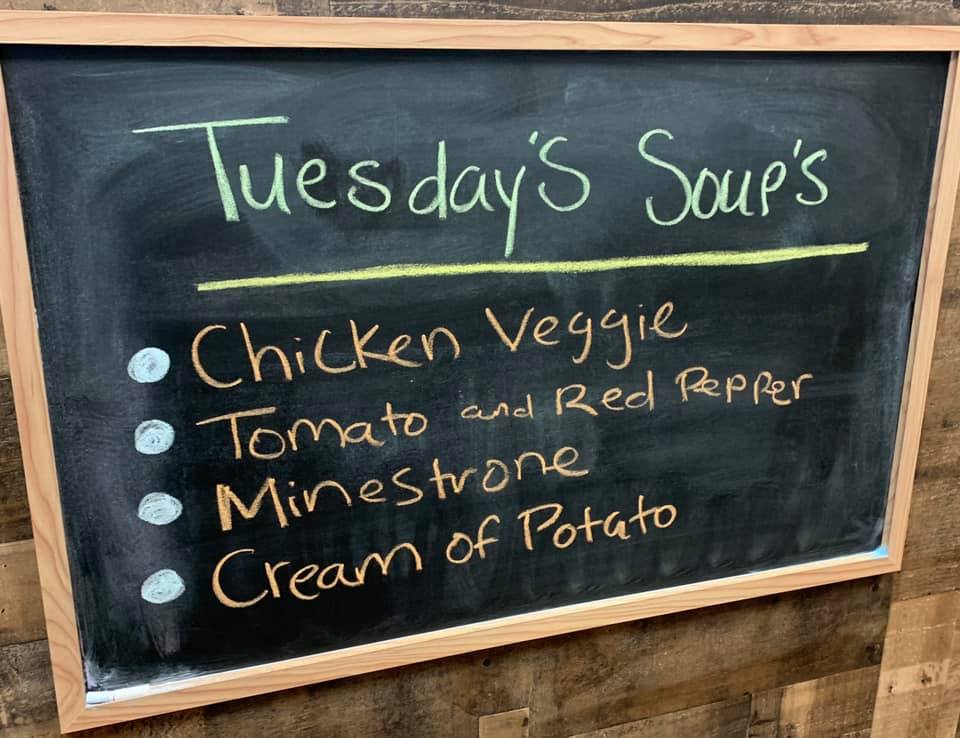 Tuesday's Soup's
Chicken Veggie
Tomato and Red Pepper
Minestrone
Cream of Potato